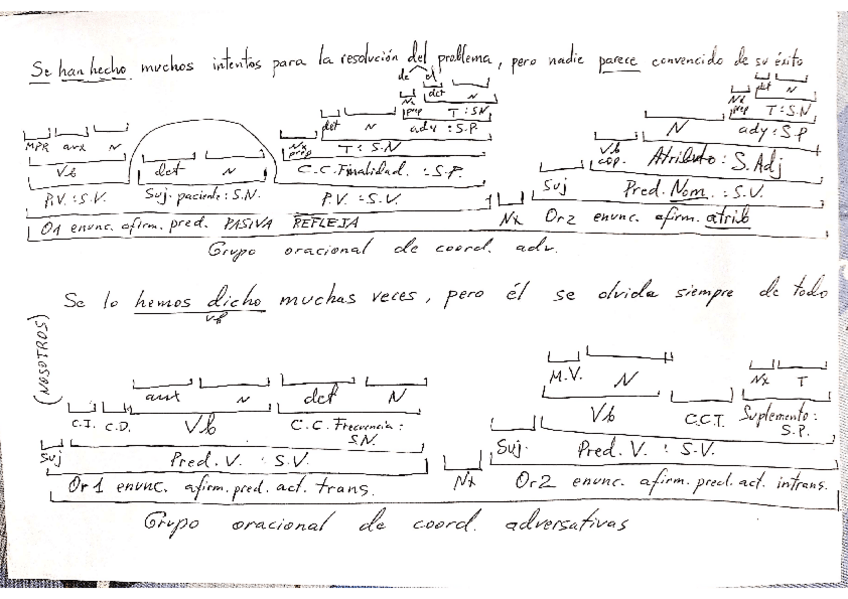 Se han hecho muchos intentos para la resolución del problema, pero nadie parece convencido de su éxito
de el
det N det N
Nx prep T : S.N Nx prep T : S.N
det N ady : S.P. N ady : S.P
MPR aux N Nx prep T : S.N Vb cop. Atributo : S.Adj
Vb det N C.C. Finalidad. : S.P. Suj Pred. Nom. : S.V.
P.V. : S.V. Suj. paciente : S.N. P.V. : S.V.
O1 enunc. afirm. pred. PASIVA REFLEJA Nx Or2 enunc. afirm. atrib
Grupo oracional de coord. adv.
Se lo hemos dicho muchas veces, pero él se olvida siempre de todo
vb
(NOSOTROS)
M.V. N Nx T
aux N det N
C.I. C.D. Vb C.C. Frecuencia : S.N. Vb C.C.T. Suplemento : S.P.
Suj Pred. V. : S.V. Suj. Pred. V. : S.V.
Or1 enunc. afirm. pred. act. trans. Nx Or2 enunc. afirm. pred. act. intrans.
Grupo oracional de coord. adversativas